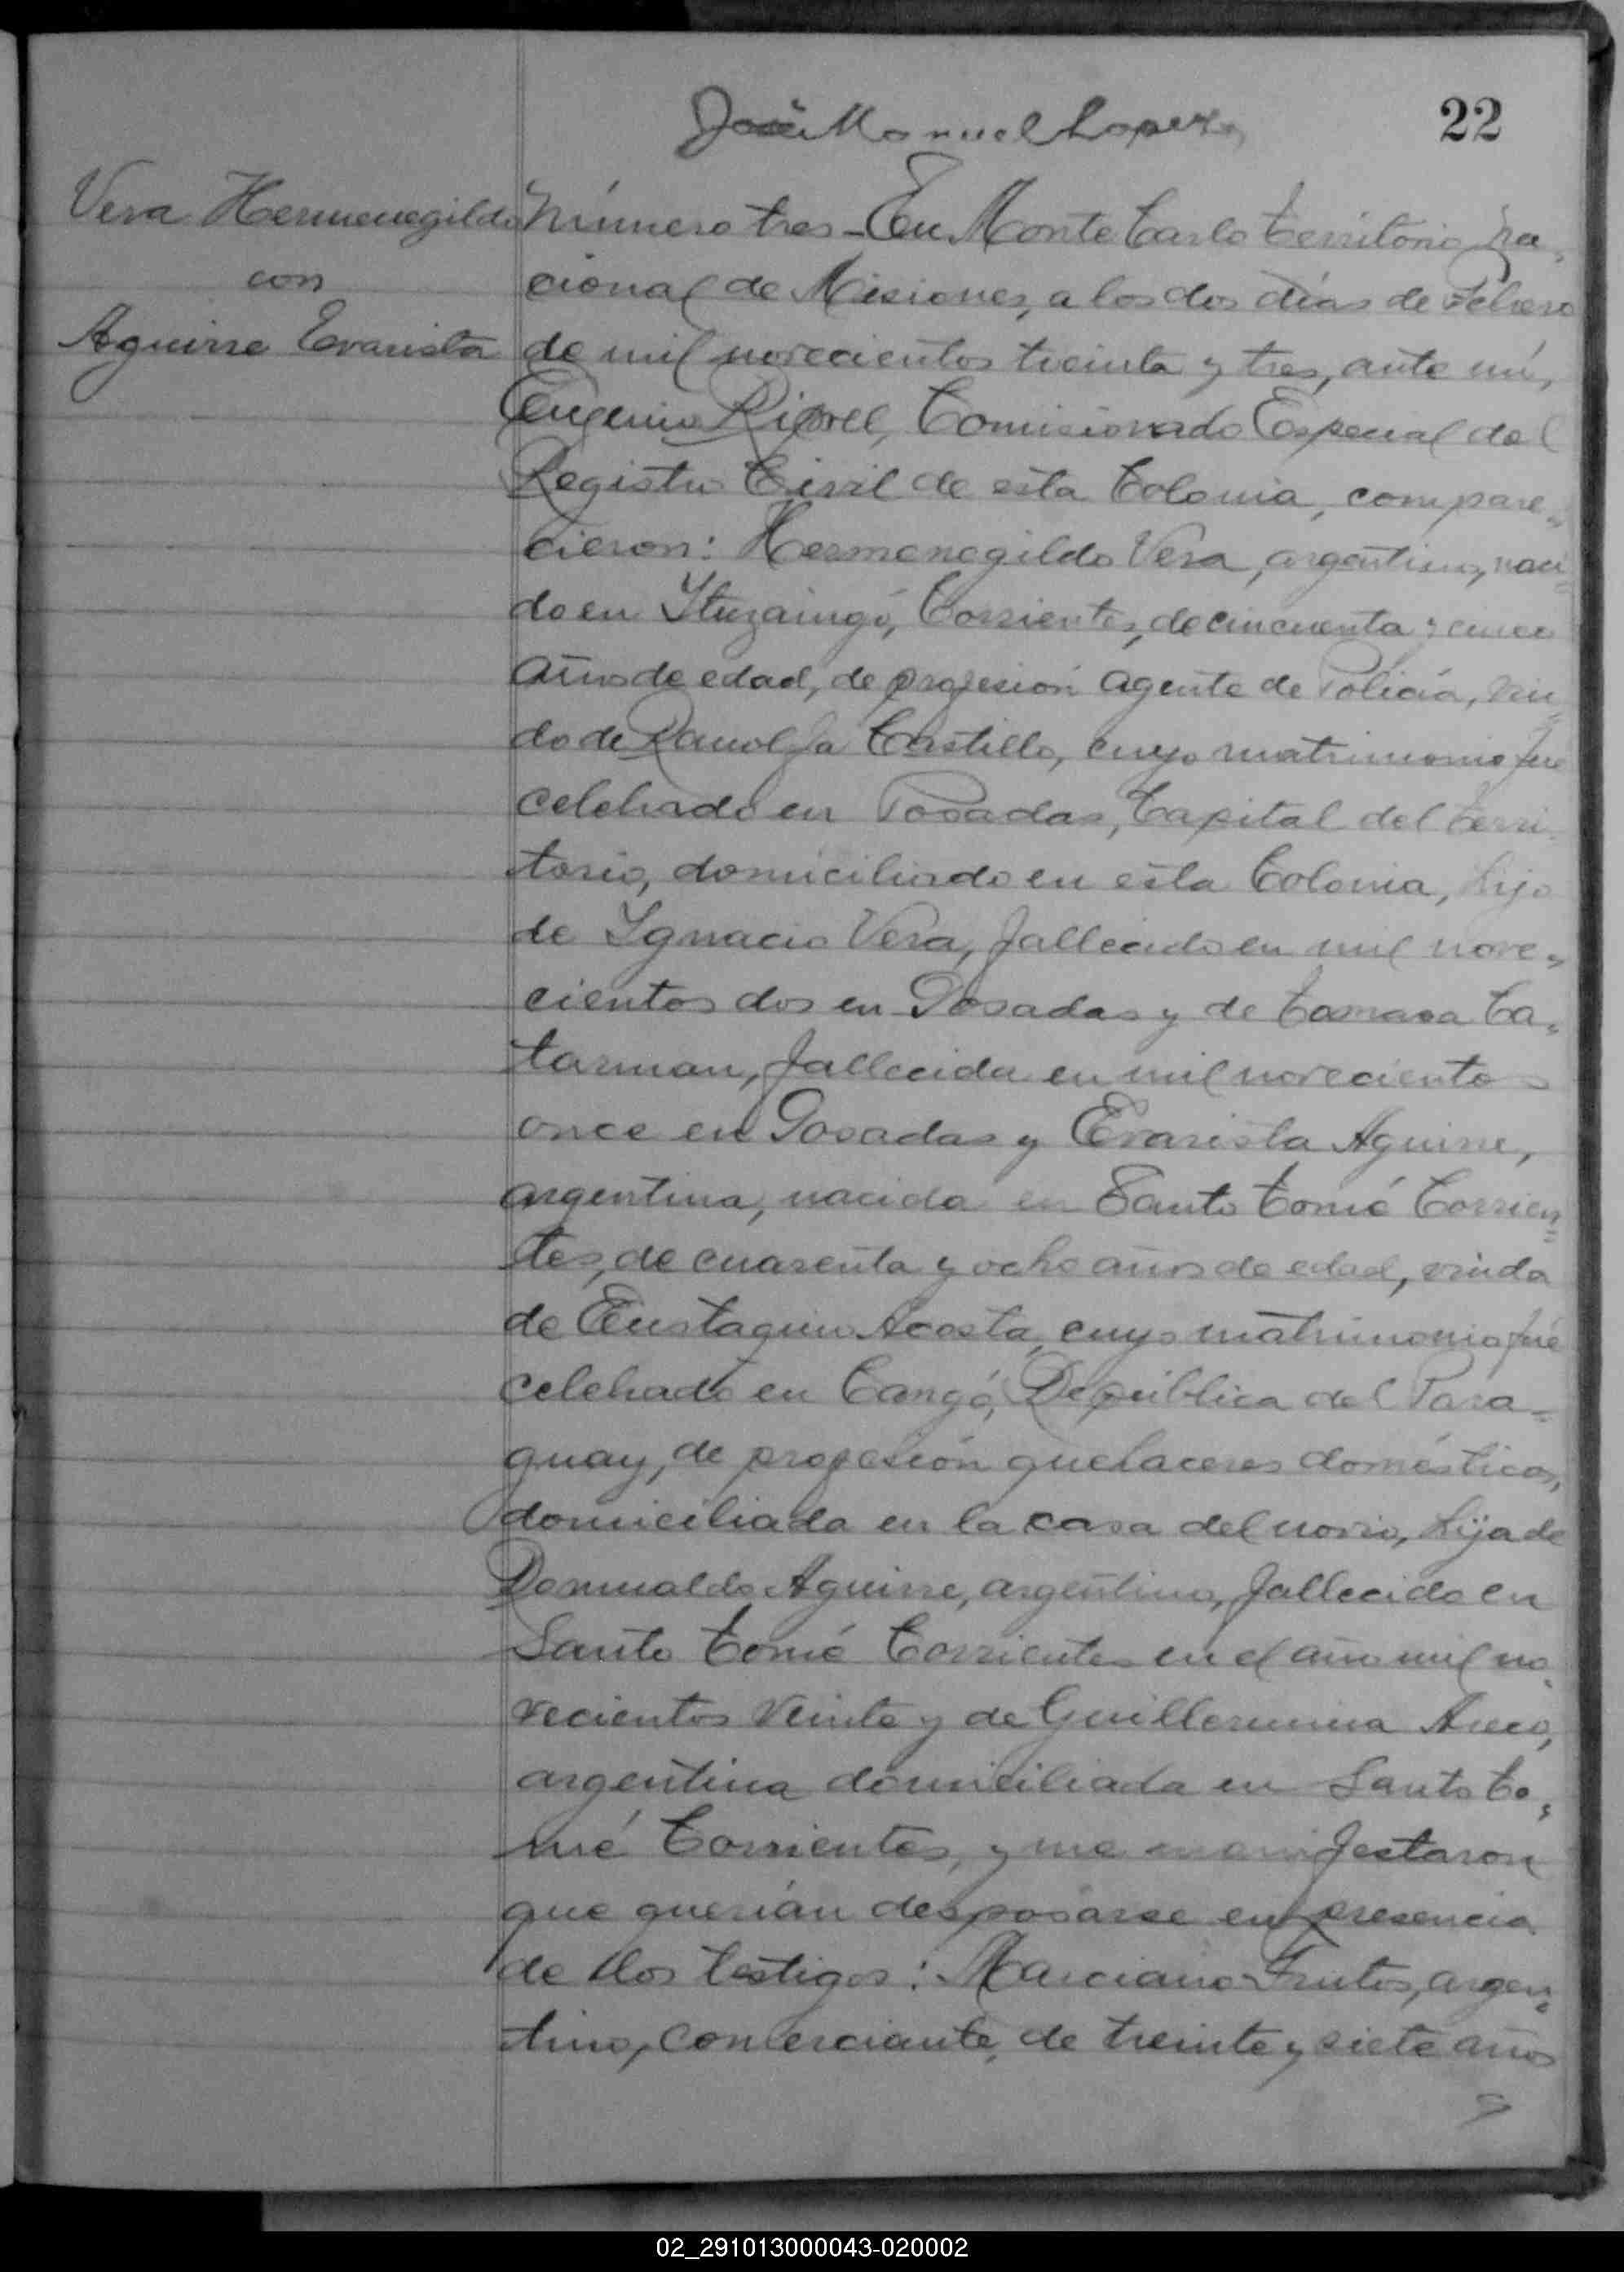 José Manuel Lopez
22
Vera Hermenegildo
con
Aguirre Evarista
Número tres - En Monte Carlo territorio na-
cional de Misiones, a los dos días de Febrero
de mil novecientos treinta y tres, ante mí,
Eugenio Comisionado Especial del
Registro Civil de esta Colonia, compare-
cieron: Hermenegildo Vera, argentino, naci-
do en Ytuzaingó, Corrientes, de cincuenta y cinco
años de edad, de profesión agente de Policía, viu-
do de Castillo, cuyo matrimonio fué
celebrado en Posadas, Capital del terri-
torio, domiciliado en esta Colonia, hijo
de Ygnacio Vera, fallecido en mil nove-
cientos dos en Posadas y de
fallecida en mil novecientos
once en Posadas y Evarista Aguirre,
argentina, nacida en Santo Tomé Corrien-
tes, de cuarenta y ocho años de edad, viuda
de Eustaquio Acosta, cuyo matrimonio fué
celebrado en Cangó, República del Para-
guay, de profesión quehaceres domésticos,
domiciliada en la casa del novio, hija de
Romualdo Aguirre, argentino, fallecido en
Santo Tomé Corrientes en el año mil no-
vecientos veinte y de Guillermina
argentina domiciliada en Santo To-
mé Corrientes, y me manifestaron
que querían desposarse en presencia
de los testigos: Marciano Frutos, argen-
tino, comerciante, de treinta y siete años
02_291013000043-020002